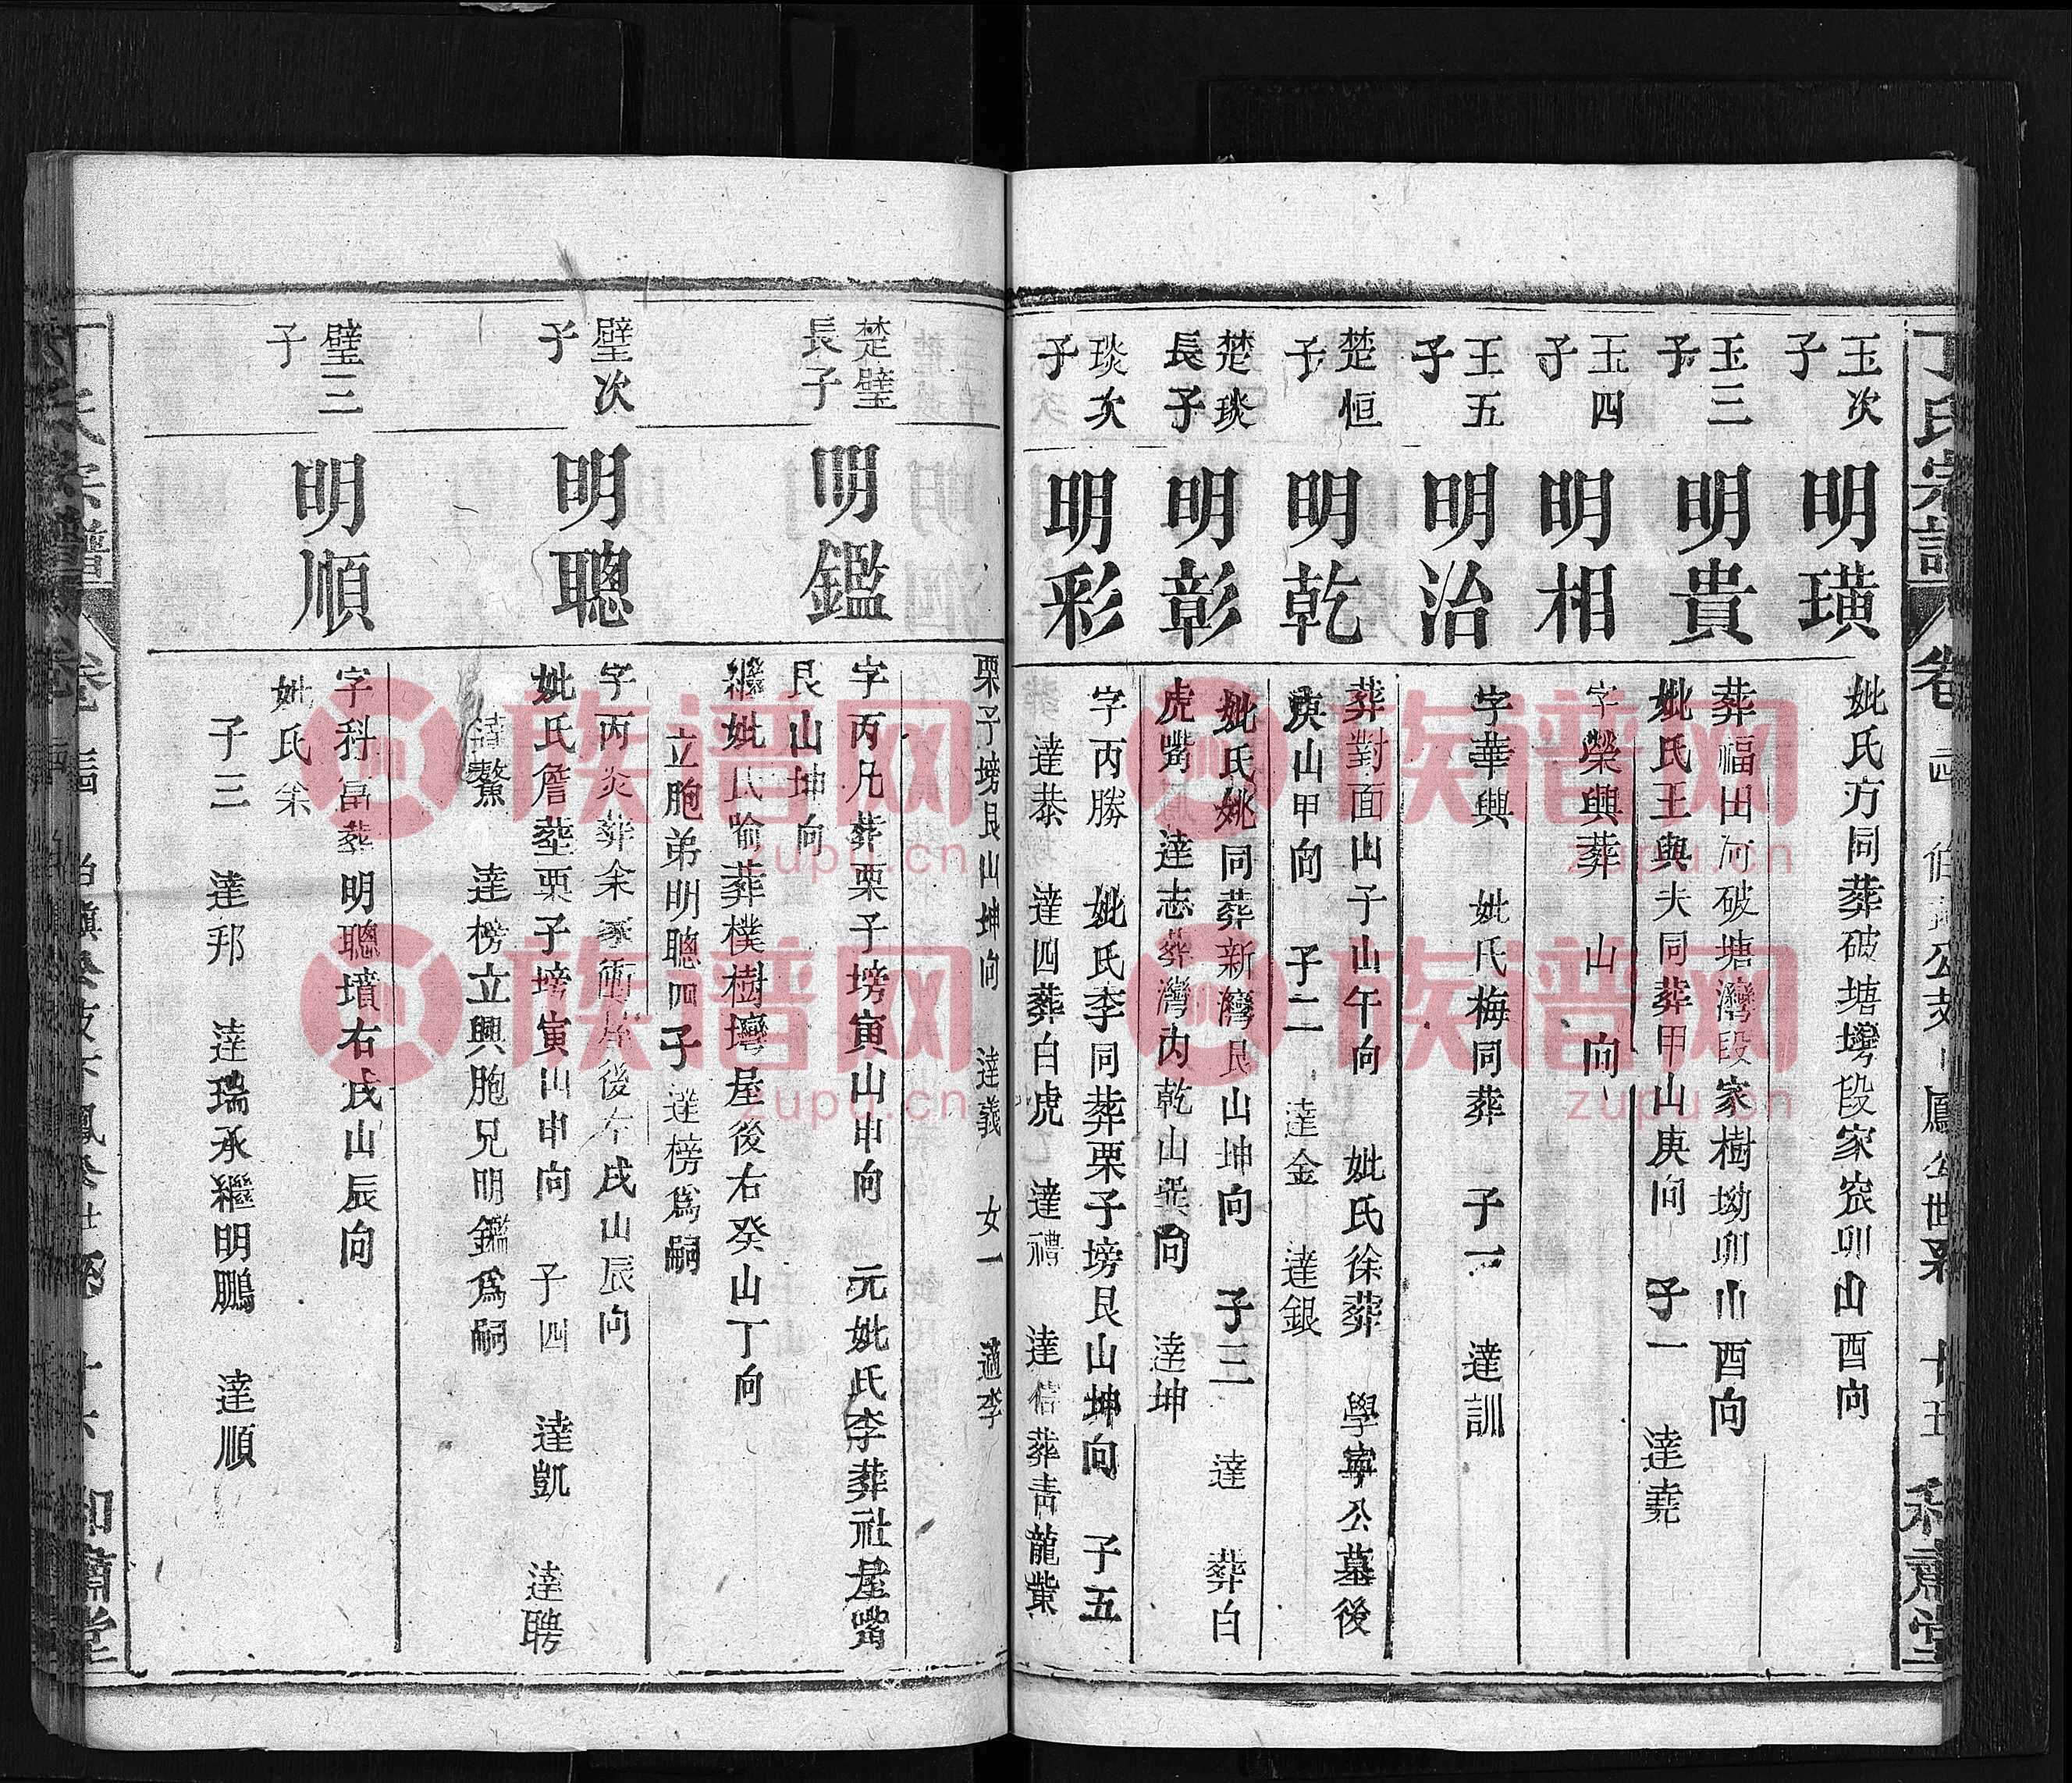 丁氏宗譜
卷
玉次子
明璜
妣氏方同葬破塘塆段家𡊢卯山酉向
玉三子
明貴
葬福田河破塘灣段家樹坳卯山酉向
妣氏王與夫同葬甲山庚向 子一 達堯
玉四子
明相
字榮興葬 山 向
玉五子
明治
字華興 妣氏梅同葬 子一 達訓
楚恒子
明乾
葬對面山子山午向 妣氏徐葬 學寧公墓後
庚山甲向 子二 達金 達銀
楚琰長子
明彰
妣氏姚同葬新灣艮山坤向 子三 達 葬白
虎嘴 達志葬灣内乾山巽向 達坤
琰次子
明彩
字丙勝 妣氏李同葬栗子塝艮山坤向 子五
達恭 達四葬白虎 達禮 達信葬青龍 葉
栗子塝艮山坤向 達義 女一 適李
楚璧長子
明鑑
字丙凡葬栗子塝寅山申向 元妣氏李葬社屋嘴
艮山坤向
繼妣氏喻葬樸樹塆屋後右癸山丁向
立胞弟明聰四子達榜為嗣
璧次子
明聰
字丙炎葬余家衝屋後左戌山辰向
妣氏詹塟栗子塝寅山申向 子四 達凱 達聘
達鰲 達榜立興胞兄明鑑為嗣
璧三子
明順
字科畐葬明聰墳右戌山辰向
妣氏余
子三 達邦 達瑞承繼明鵬 達順
丁氏宗譜
卷 和肅堂
族谱网
zupu.cn
族谱网
zupu.cn
族谱网
zupu.cn
族谱网
zupu.cn